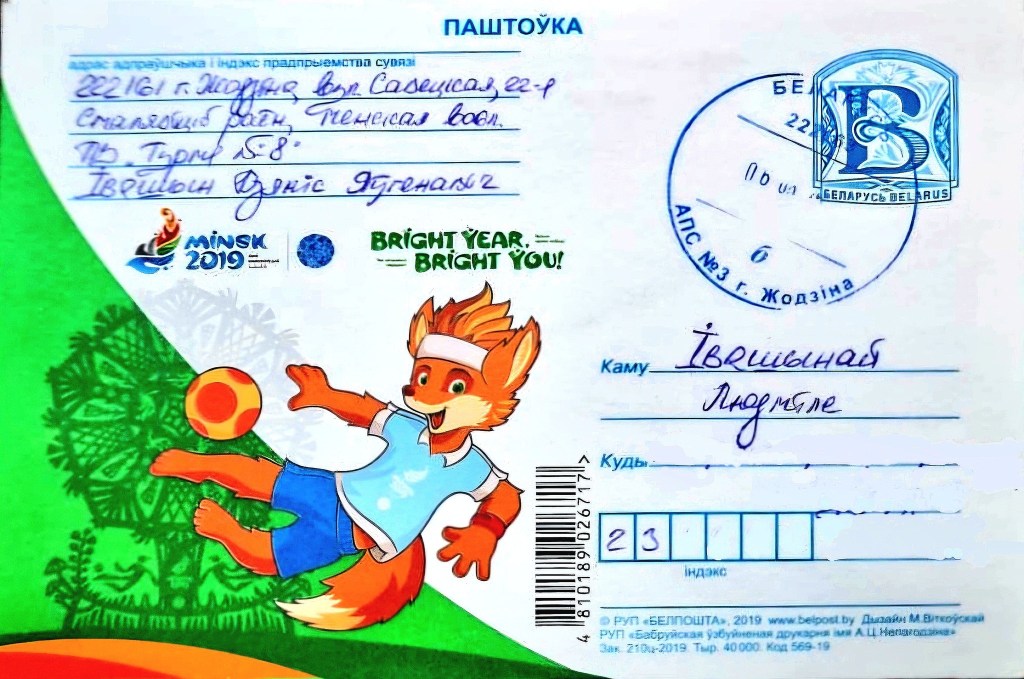 ПАШТОЎКА
адрас адпраўшчыка і індэкс прадпрыемства сувязі
222161 г. Жодзіна, вул. Савецкая, 22-а
Смалявіцкі раён, Менская вобл.
"Турма №8"
Івашын Дзяніс Яўгенавіч
MINSK
2019
BRIGHT YEAR,
BRIGHT YOU!
БЕЛА
АПС №3 г. Жодзіна
6
Б
БЕЛАРУСЬ BELARUS
Каму Івашынай
Людміле
Куды
23
індэкс
4 810189 026717 >
© РУП «БЕЛПОШТА», 2019 www.belpost.by Дызайн М.Віткоўскай
РУП «Бабруйская ўзбуйненая друкарня імя А.Ц.Непагодзіна»
Зак. 210ц-2019. Тыр. 40000. Код 569-19